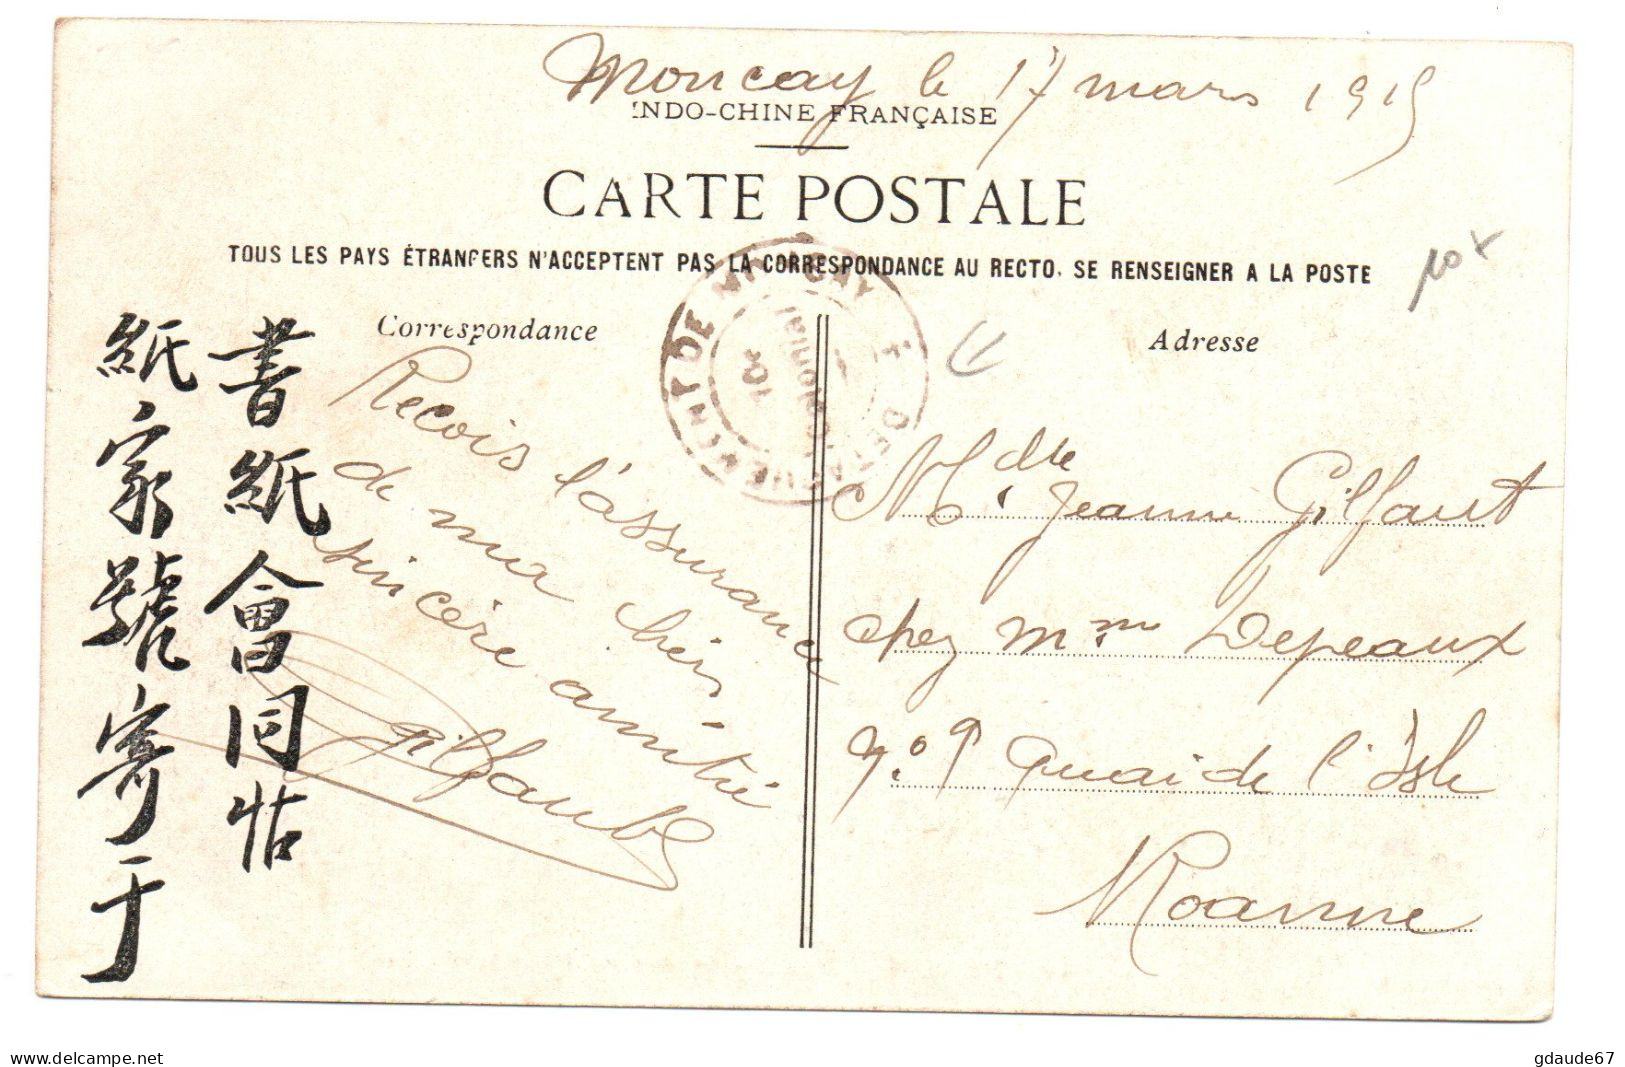 Moncay le 17 mars 1915
INDO-CHINE FRANÇAISE
CARTE POSTALE
TOUS LES PAYS ÉTRANGERS N'ACCEPTENT PAS LA CORRESPONDANCE AU RECTO. SE RENSEIGNER A LA POSTE
Correspondance
書紙會同怙
紙家號寄于
Recois l'assurance
de ma chère
sincère amitié
Gilfaut
DETACHEMENT DE MONCAY
Colonial
10e
Adresse
Mdlle Jeanne Gilfaut
chez Mme Depeaux
No 9 Quai de l'Isle
Roanne
delcampe.net
gdaude67